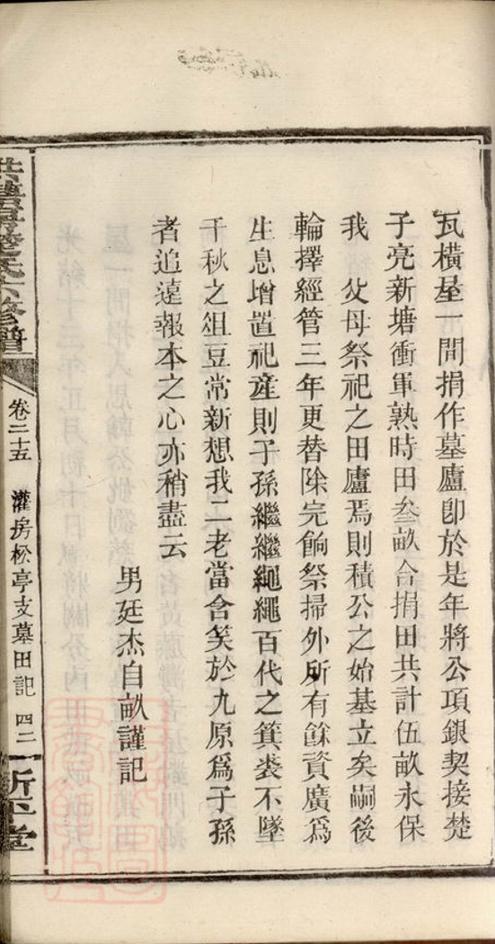 瓦橫屋一間捐作墓廬卽於是年將公項銀契接楚
子亮新塘衝軍熟時田叄畝合捐田共計伍畝永保
我　父母祭祀之田廬焉則積公之始基立矣嗣後
輪擇經管三年更替除完餉祭掃外所有餘資廣爲
生息增置祀產則子孫繼繼繩繩百代之箕裘不墜
千秋之俎豆常新想我二老當含笑於九原爲子孫
者追遠報本之心亦稍盡云
男廷杰自畝謹記
氏六修譜
卷二十五　灌房松亭支墓田記　四二
新平堂